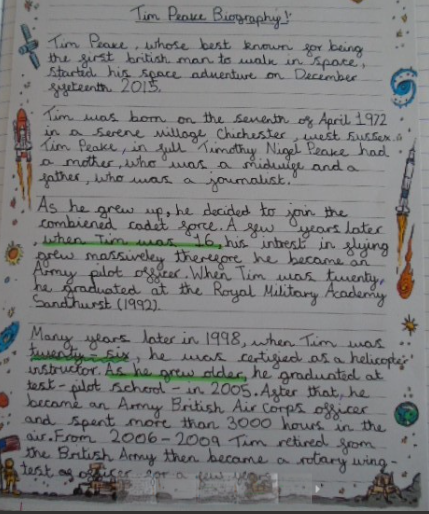 Tim Peake Biography!
Tim Peake, whose best known for being
the first british man to walk in space,
started his space adventure on December
fifteenth 2015.
Tim was born on the seventh of April 1972
in a serene village Chichester, west sussex.
Tim Peake, in full Timothy Nigel Peake had
a mother, who was a midwife and a
father, who was a journalist.
As he grew up, he decided to join the
combiened cadet force. A few years later
, when Tim was 16, his intrest in flying
grew massiveley therefore he became an
Army pilot officer. When Tim was twenty,
he graduated at the Royal Military Academy
Sandhurst (1992).
Many years later in 1998, when Tim was
twenty-six, he was certified as a helicopter
instructor. As he grew older, he graduated at
test-pilot school - in 2005. After that, he
became an Army British Air Corps officer
and spent more than 3000 hours in the
air. From 2006-2009 Tim retired from
the British Army then became a rotary wing-
test officer for a few